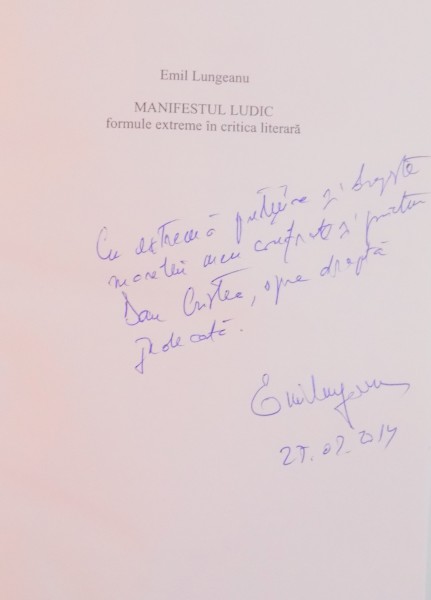 Emil Lungeanu
MANIFESTUL LUDIC
formule extreme în critica literară
Cu extremă prețuire și dragoste
marelui meu confrate și prieten
Dan Cristea, spre dreaptă
judecată.